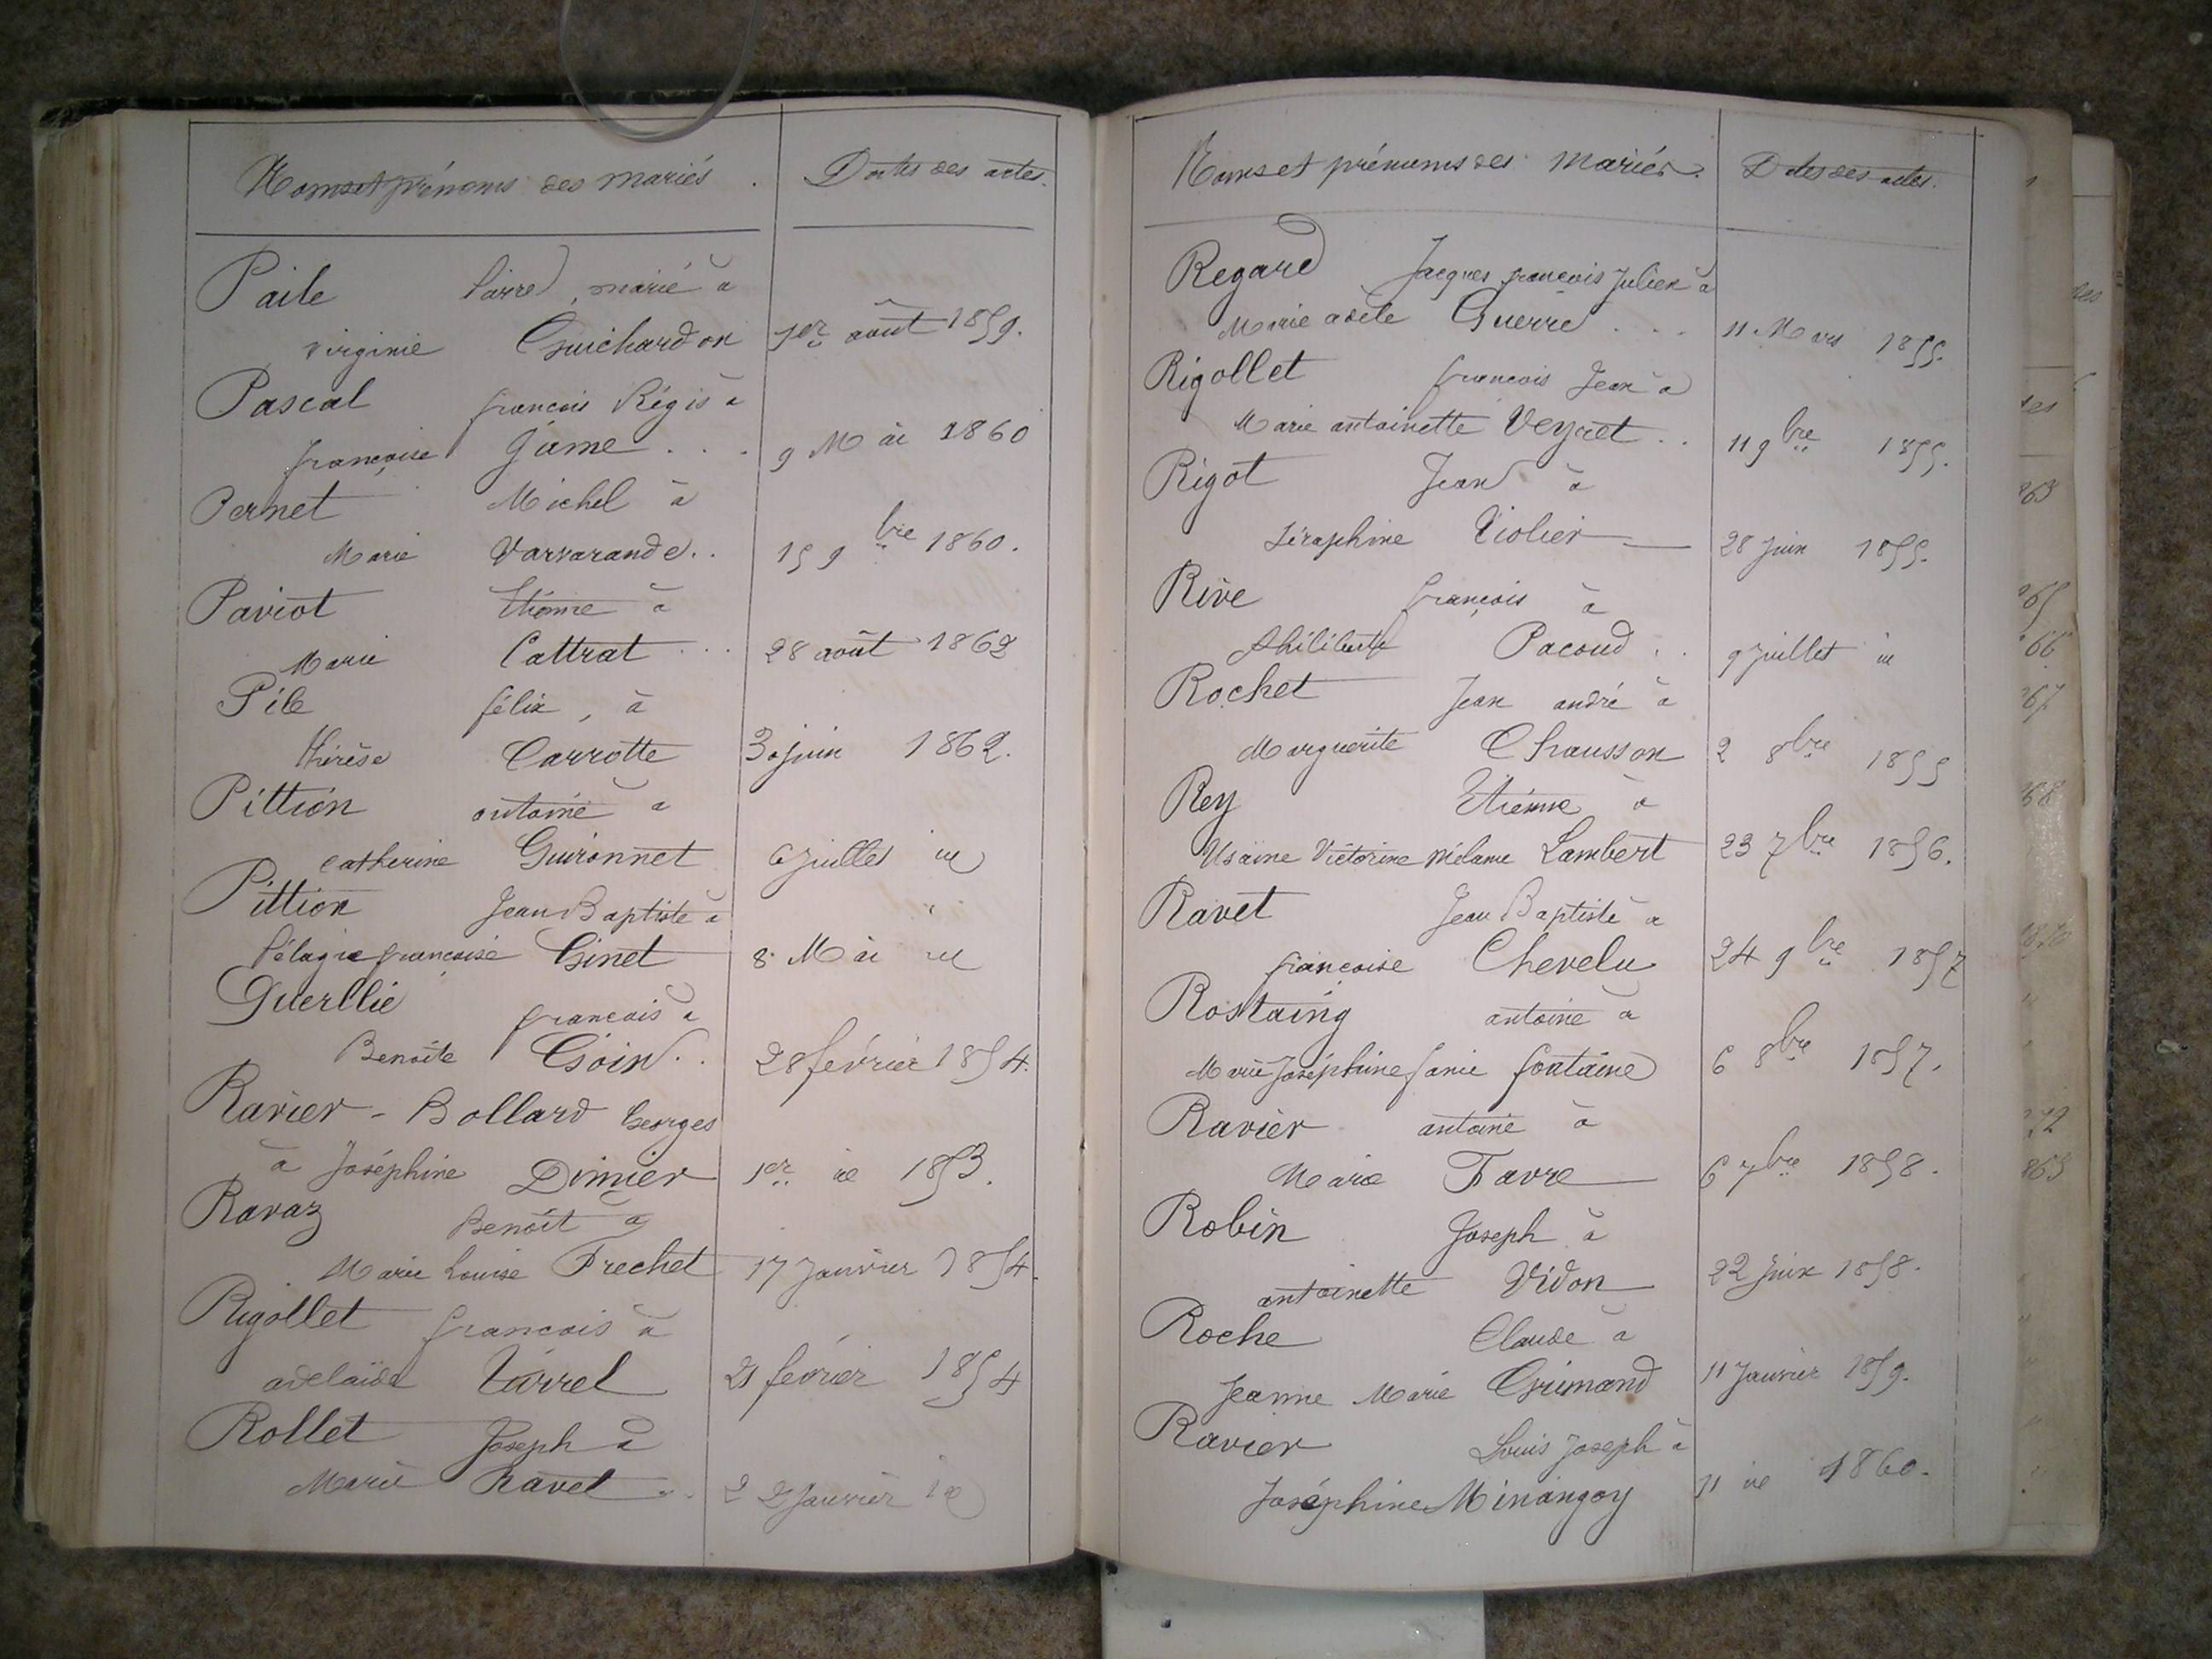 Noms et prénoms des mariés. Dates des actes.
Paile Pierre, marié à
virginie Guichardon 1er août 1859.
Pascal françois Régis à
françoise Game . . . 9 Mai 1860
Pernet Michel à
Marie Varvarande . . 15 9bre 1860.
Paviot Etienne à
Marie Cattrat . . . 28 août 1862
Pile félix, à
thérèse Carrotte 30 juin 1862.
Pittion antoine à
catherine Guironnet 6 juillet id
Pittion Jean Baptiste à
Pélagie françoise Ginet 8 Mai id
Querllie françois à
Benoîte Goin . . 28 février 1854.
Ravier - Bollard Georges
à Joséphine Dimier 1er id 1853.
Ravaz Benoît à
Marie Louise Frechet 17 Janvier 1854.
Rigollet francois à
adelaïde Varrel 21 février 1854
Rollet Joseph à
Marie Ravet . . 22 Janvier id
Noms et prénoms des mariés. Dates des actes.
Regard Jacques francois Julien à
Marie adèle Guerre . . . 11 Mars 1855.
Rigollet francois Jean à
Marie antoinette Veyret . . 11 9bre 1855.
Rigot Jean à
Séraphine Violier 28 Juin 1855.
Rive françois à
Philiberte Pacoud . . 9 Juillet id
Rochet Jean andré à
Marguerite Chausson 2 8bre 1855
Rey Etienne à
Victorine Mélanie Lambert 23 7bre 1856.
Ravet Jean Baptiste à
françoise Chevelu 24 9bre 1857
Rostaing antoine à
Marie Joséphine fanie fontaine 6 8bre 1857.
Ravier antoine à
Marie Favre 6 7bre 1858.
Robin Joseph à
antoinette Vidon 22 Juin 1858.
Roche Claude à
Jeanne Marie Grimand 11 Janvier 1859.
Ravier Louis Joseph à
Joséphine Minangoy 11 id 1860.